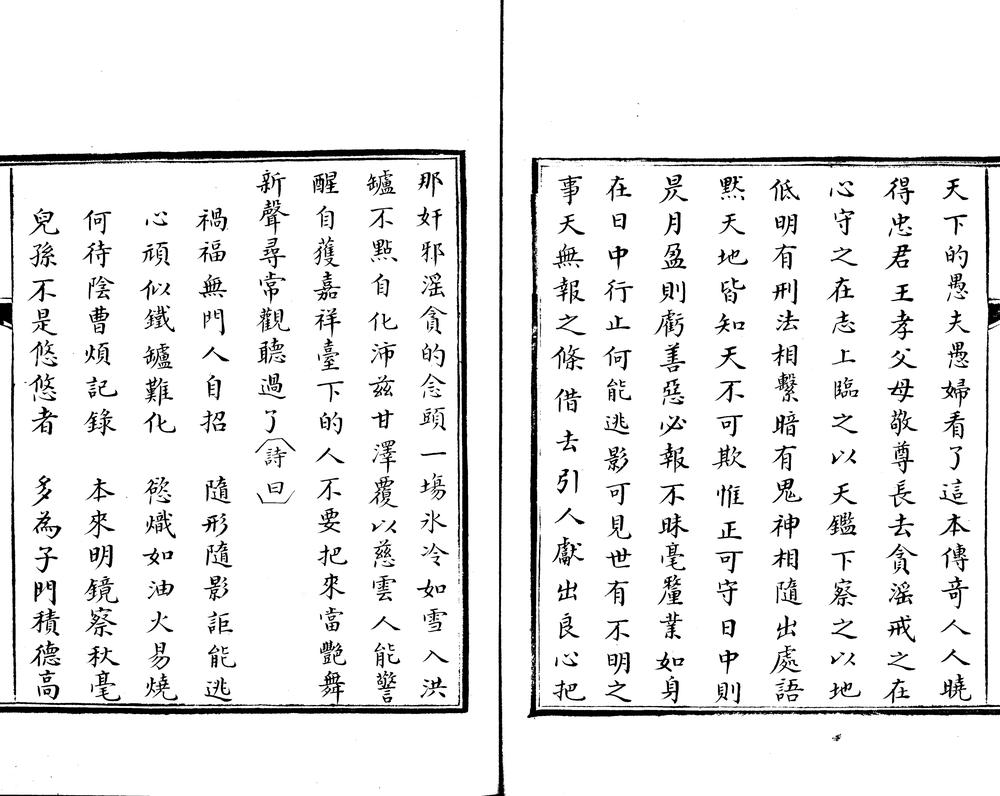 天下的愚夫愚婦看了這本傳奇人人曉
得忠君王孝父母敬尊長去貪滛戒之在
心守之在志上臨之以天鑑下察之以地
低明有刑法相繫暗有鬼神相隨出處語
黙天地皆知天不可欺惟正可守日中則
昃月盈則虧善惡必報不昧毫釐業如身
在日中行止何能逃影可見世有不明之
事天無報之條借去引人獻出良心把
那奸邪滛貪的念頭一塲氷冷如雪入洪
罏不點自化沛兹甘澤覆以慈雲人能警
醒自獲嘉祥臺下的人不要把來當艷舞
新聲尋常觀聽過了詩曰
禍福無門人自招　隨形隨影詎能逃
心頑似鐵罏難化　慾熾如油火易燒
何待陰曹煩記錄　本來明鏡察秋毫
兒孫不是悠悠者　多為子門積德高